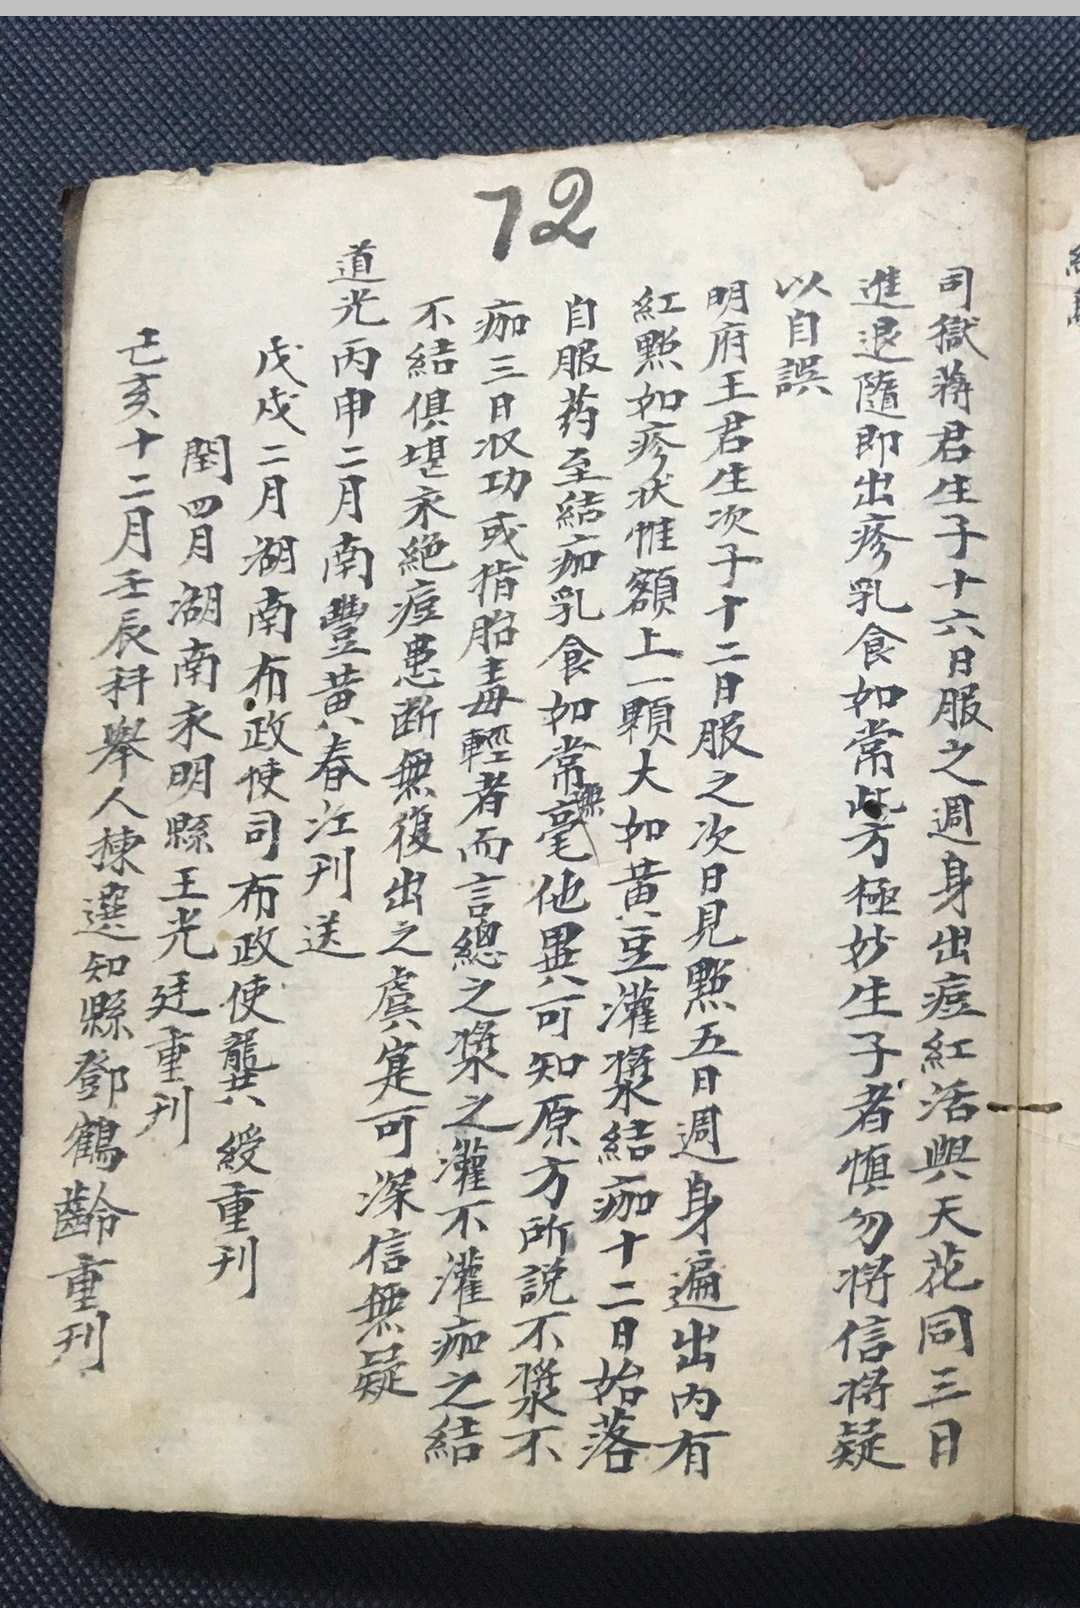 72
司獄蔣君生子十六日服之週身出痘紅活與天花同三日
進退隨即出疹乳食如常此方極妙生子者慎勿將信將疑
以自誤
明府王君生次子十二日服之次日見點五日週身遍出內有
紅點如疹状惟額上一顆大如黃豆灌漿結痂十二日始落
自服葯至結痂乳食如常無毫他異可知原方所說不漿不
痂三日收功或指胎毒輕者而言總之漿之灌不灌痂之結
不結俱堪永絕痘患断無復出之虞寔可深信無疑
道光丙申二月南豐黃春江刊送
戊戌二月湖南布政使司布政使龔綬重刊
閏四月湖南永明縣王光廷重刊
己亥十二月壬辰科舉人揀選知縣鄧鶴齡重刊